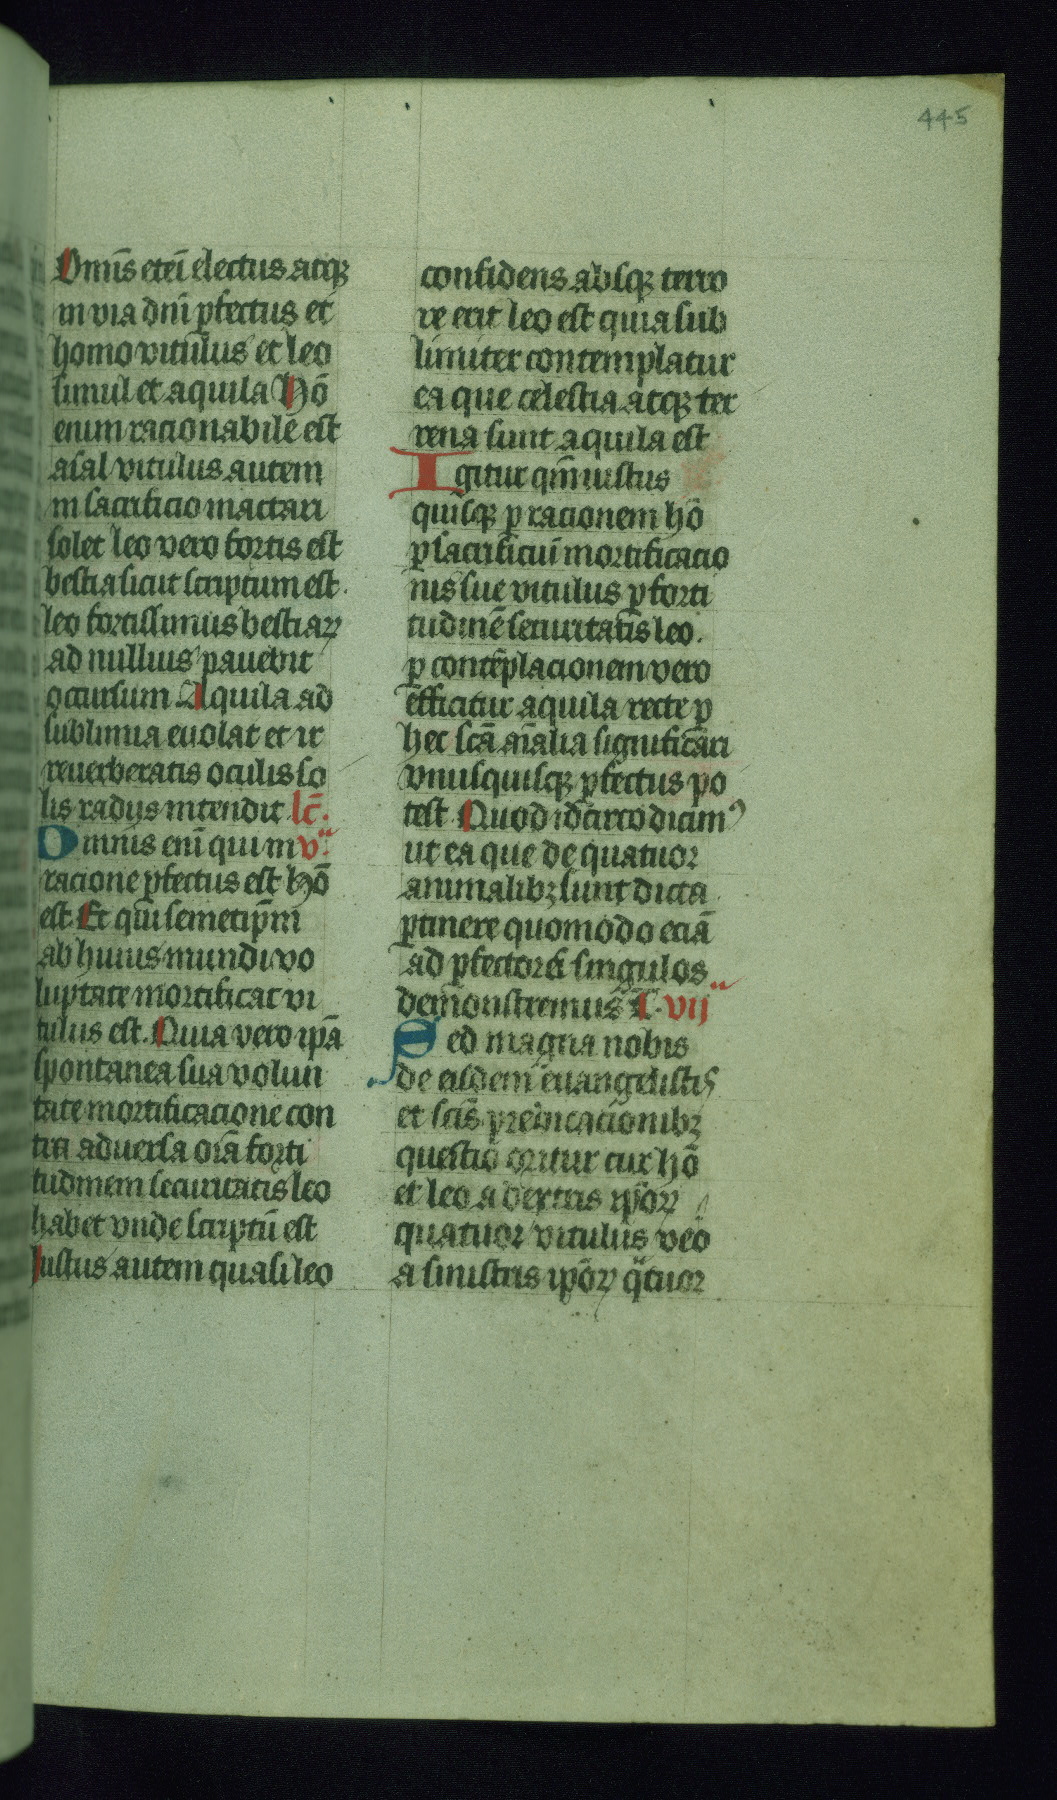 445
Omīs eteī electus atqꝫ
in via dnī ꝑfectus et
homo vitulus et leo
simul et aquila Hō
enim racionabile est
aīal vitulus autem
in sacrificio mactari
solet leo vero fortis est
bestia sicut scriptum est.
leo fortissimus bestiaꝝ
ad nullius pavebit
occursum Aquila ad
sublimia evolat et ir
reuerberatis oculis so
lis radijs intendit lc̄.
Omnis enī qui in v.
racione ꝑfectus est hō
est Et qm̄ semetip̄m
ab huius mundi vo
luptate mortificat vi
tulus est. Quia vero ip̄a
spontanea sua volun
tate mortificacione con
tra adversa oīa forti
tudinem securitatis leo
habet vnde scriptū est
Iustus autem quasi leo
confidens absqꝫ terro
re erit leo est quia sub
limiter contemplatur
ea que celestia atqꝫ ter
rena sunt aquila est
Igitur qm̄ iustus
quisqꝫ ꝑ racionem hō
ꝑ sacrificiū mortificacio
nis sue vitulus ꝑ forti
tudinē securitatis leo.
ꝑ contēplacionem vero
efficitur aquila recte ꝑ
hec scā aīalia significari
vnusquisqꝫ ꝑfectus po
test Quod idcirco dicimꝰ
ut ea que de quatuor
animalibꝫ sunt dicta
ꝑtinere quomodo eciā
ad ꝑfectorū singulos
demonstremus l. vij
Sed magna nobis
de eisdem euangelistis
et scīs predicacionibꝫ
questio oritur cur hō
et leo a dextris ip̄oꝝ
quatuor vitulus veō
a sinistris ip̄oꝝ qͣtuor